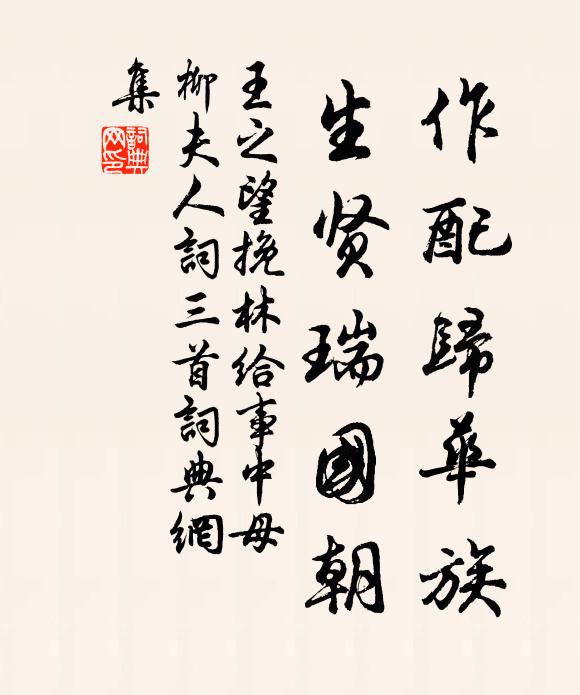 作配歸華族
生贤瑞國朝
王之望挽林给事中母
柳夫人詞三首詞典網
集
詞典网印